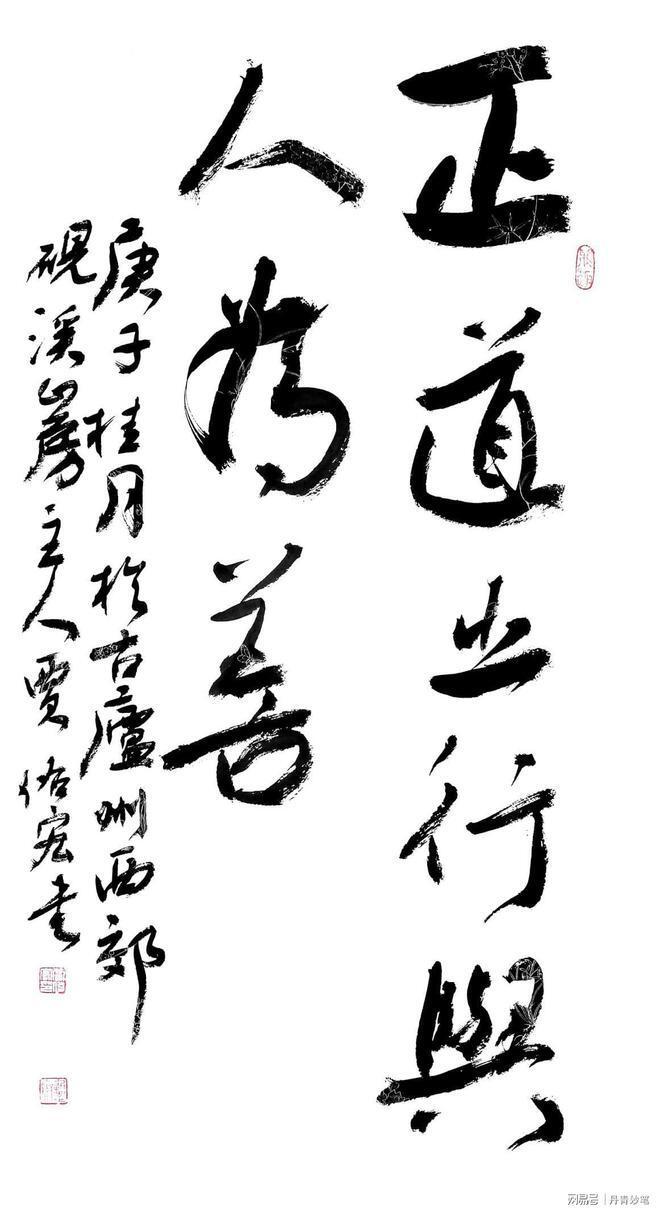 正道之行與
人為善
庚子桂月於古廬州西郊
硯溪山房主人賈佑宏書
网易号 | 丹青妙笔